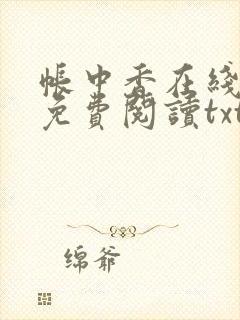 帳中香在綫
免費閱讀txt
绵爷